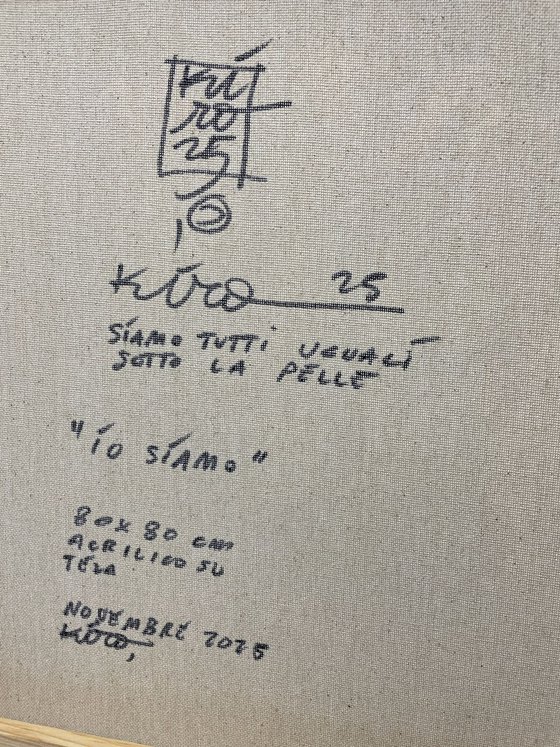 Kí
ro
25
Kíro 25
SÍAMO TUTTI UGUALÍ
SOTTO LA PELLE
"ÍO SÍAMO"
80x80 cm
ACRILICO SU
TELA
NOVEMBRÉ 2025
Kíro,